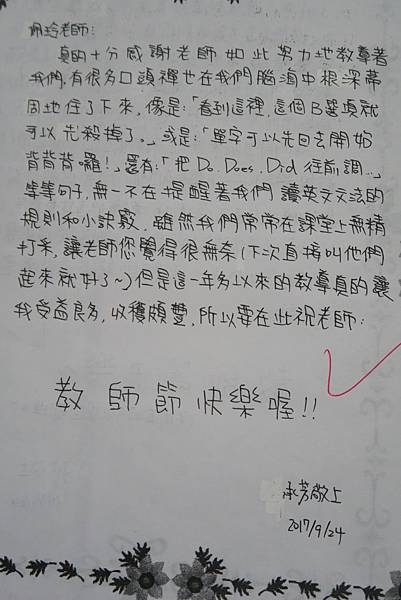 佩玲老師:
真的十分感謝老師如此努力地教導著
我們,有很多口頭禪也在我們腦海中根深蒂
固地住了下來,像是:「看到這裡,這個B選項就
可以先殺掉了。」或是:「單字可以先回去開始
背背背囉!」還有:「把Do. Does. Did 往前調...」
等等句子,無一不在提醒著我們讀英文文法的
規則和小訣竅,雖然我們常常在課堂上無精
打采,讓老師您覺得很無奈(下次直接叫他們
起來就好了~)但是這一年多以來的教導真的讓
我受益良多,收穫頗豐,所以要在此祝老師:
教師節快樂喔!!
承芳敬上
2017/9/24